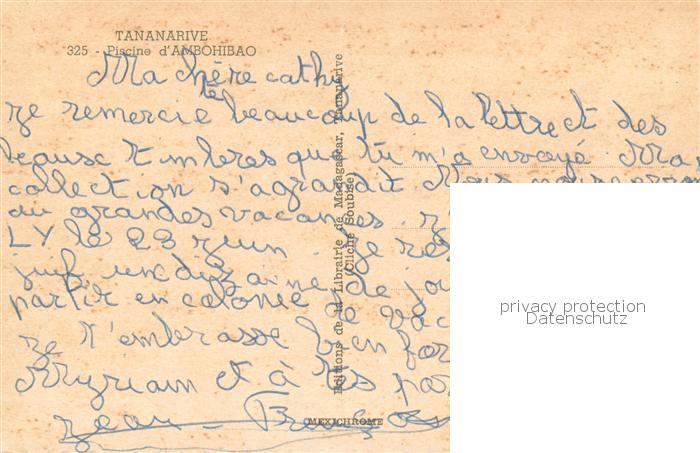 TANANARIVE
325 - Piscine d'AMBOHIBAO
Ma chère cathy
te
je remercie beaucoup de la lettre et des
beaux timbres que tu m'a envoyé Ma
collection s'agrandit. Nous nous
au grandes vacances.
LY le 23 juin. Je
une dizaine de
partir en colonie de vac
je t'embrasse bien for
Myriam et à tes par
Jean-François
Editions de la Librairie de Madagascar, Tananarive
(Cliché Soubise)
MEXICHROME
privacy protection
Datenschutz